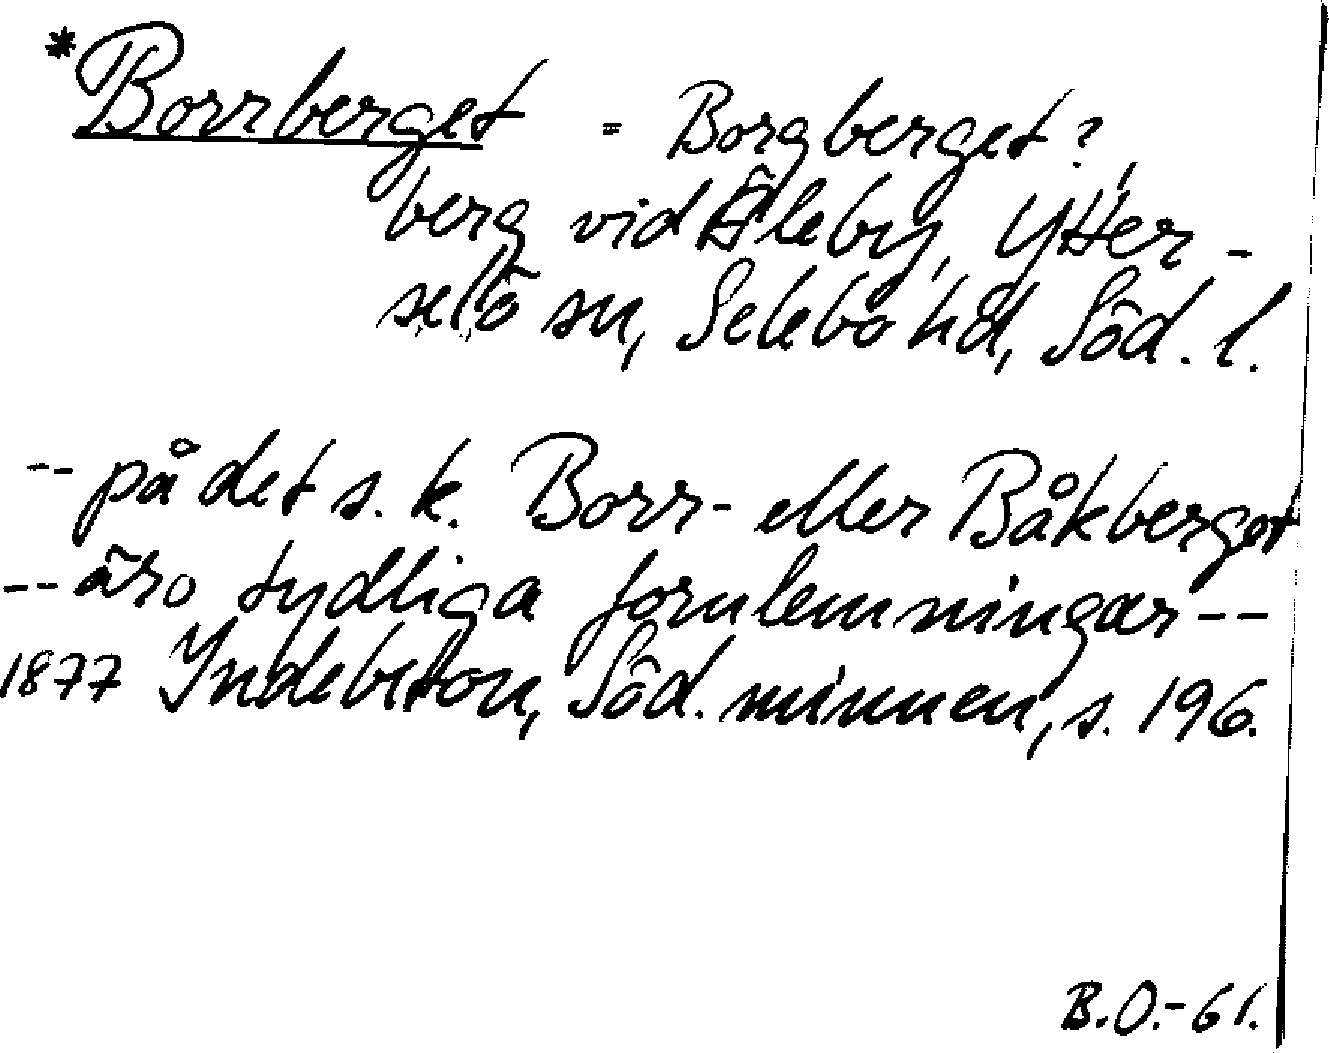 *Borrberget = Borgberget?,
berg vid Äleby, Ytter-
selö sn, Selebo hd, Söd. l.
-- på det s. k. Borr- eller Båkberget
-- äro tydliga fornlemningar --
1877 Indebetou, Söd. minnen, s. 196.
B.O.-61.